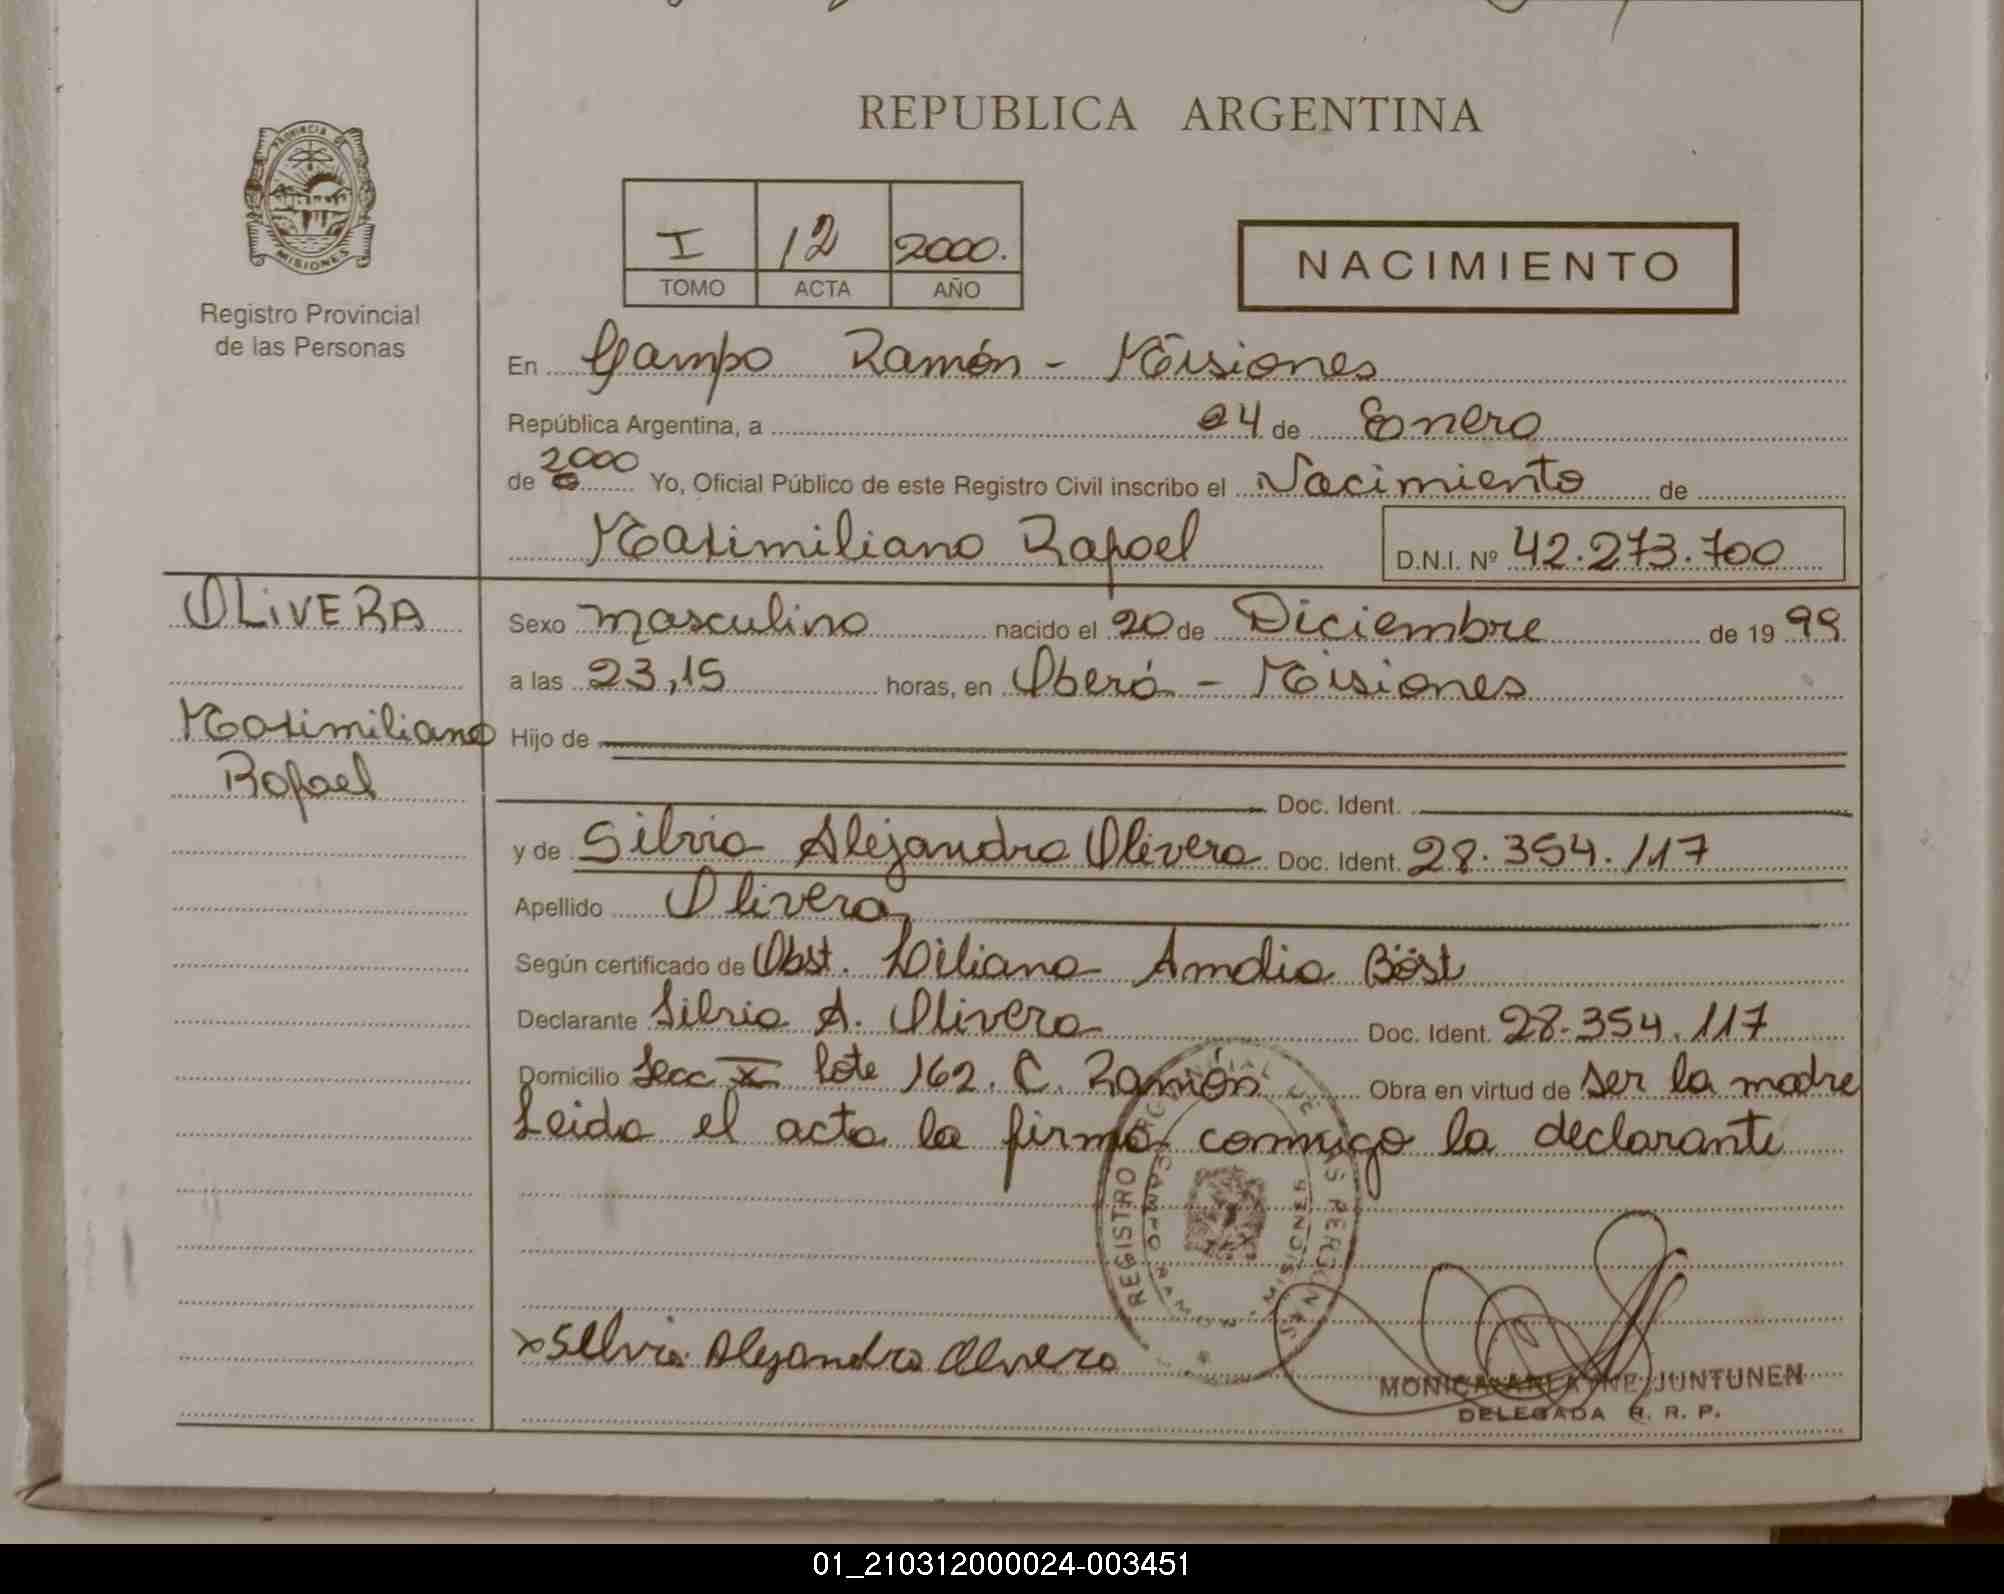 REPUBLICA ARGENTINA
PROVINCIA DE
MISIONES
Registro Provincial
de las Personas
I 12 2000.
TOMO ACTA AÑO
NACIMIENTO
En Campo Ramón - Misiones
República Argentina, a 04 de Enero
de 2000 Yo, Oficial Público de este Registro Civil inscribo el Nacimiento de
Maximiliano Rafael D.N.I. Nº 42.273.700
OLIVERA
Maximiliano
Rafael
Sexo masculino nacido el 20 de Diciembre de 19 99
a las 23,15 horas, en Oberá - Misiones
Hijo de
Doc. Ident.
y de Silvia Alejandra Olivera Doc. Ident. 28.354.117
Apellido Olivera
Según certificado de Obst. Liliana Amalia Böst
Declarante Silvia A. Olivera Doc. Ident. 28.354.117
Domicilio Secc X lote 162. C. Ramón Obra en virtud de ser la madre
Leida el acta la firma conmigo la declarante
REGISTRO PROVINCIAL DE LAS PERSONAS
CAMPO RAMON MISIONES
x Silvia Alejandra Olivera
MONICA ARLAYNE JUNTUNEN
DELEGADA R. R. P.
01_210312000024-003451